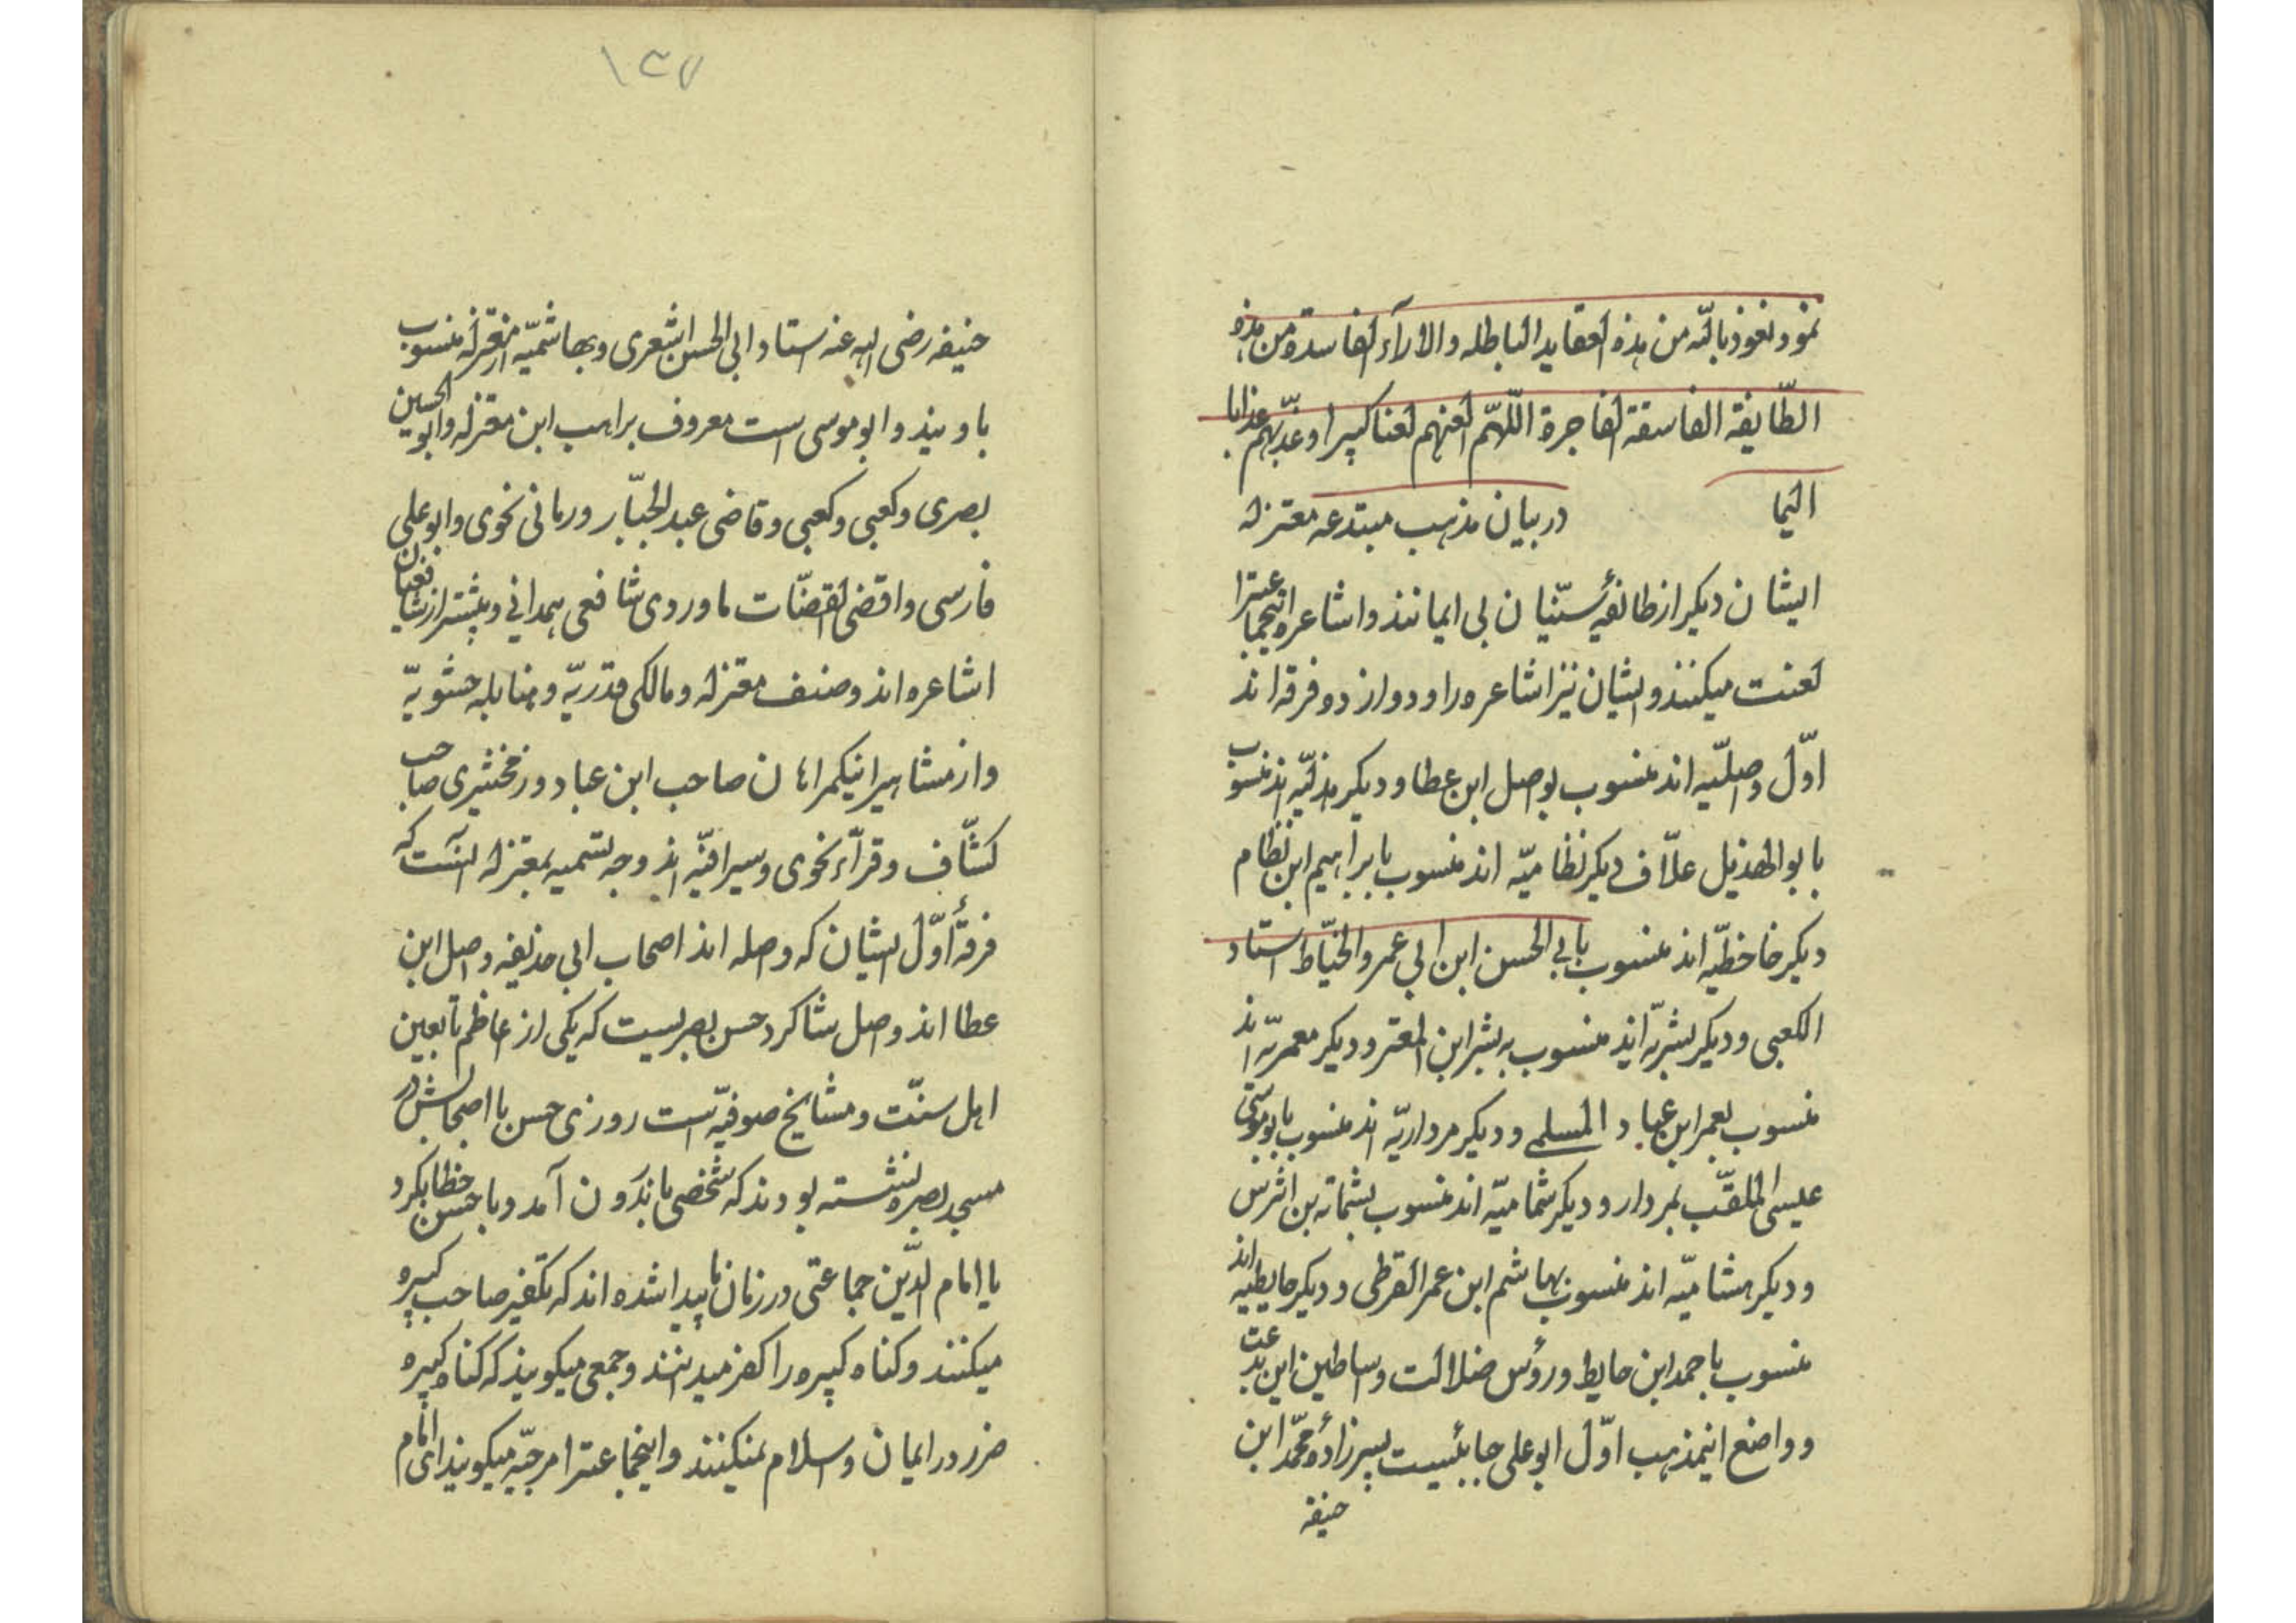 نمود نعوذ بالله من هذه العقاید الباطله والاراء الفاسدة و من هذه
الطّایفة الفاسقة الفاجرة اللّهمّ العنهم لعنا کبیرا و عذّبهم عذابا
الیما در بیان مذهب مبتدعه معتزله
ایشان دیکر از طائفهٔ سنّیان بی ایمانند و اشاعره اینجماعترا
لعنت میکنند و ایشان نیز اشاعره را و دوازده فرقه اند
اوّل وصلیّه اند منسوب بوصل ابن عطا و دیکر هذلیّه اند منسوب
بابو الهذیل علاّف دیکر نظامیّه اند منسوب بابراهیم ابن نظام
دیکر خاخطیّه اند منسوب بابی الحسن ابن ابی عمرو الخیّاط استاد
الکعبی و دیکر بشریّه اند منسوب به بشر ابن المعتر و دیکر معمریّه اند
منسوب بعمر ابن عباد المسلمی و دیکر مرداریّه اند منسوب بابو موسی
عیسی الملقّب بمردار و دیکر شمامیّه اند منسوب بشمامه بن اشرس
و دیکر هشامیّه اند منسوب بهاشم ابن عمر القرطی و دیکر حایطیه اند
منسوب باحمد ابن حایط و رؤس ضلالت و اساطین این بدعت
و واضع اینمذهب اوّل ابو علی جبائیست پسرزادهٔ محمّد ابن
حنیفه
١٣٧
حنیفه رضی الله عنه استاد ابی الحسن اشعری و بهاشمیّه از معتزله منسوب
باویند و ابو موسی است معروف براهب ابن معتزله و ابو الحسین
بصری و کعبی و کعبی و قاضی عبد الجبّار و رمانی نحوی و ابو علی
فارسی و اقضی القضّات ماوردی شافعی همدانی و بیشتر از شافعیان
اشاعره اند و صنف معتزله و مالکی قدریّه و حنابله حشویّه
و از مشاهیر اینکمراهان صاحب ابن عباد و زمخشری صاحب
کشّاف و فرّاء نحوی و سیرافیّه اند وجه تسمیه بمعتزله انست که
فرقهٔ اوّل ایشان که وصله اند اصحاب ابی حذیفه وصل ابن
عطا اند وصل شاکرد حسن بصریست که یکی از اعاظم تابعین
اهل سنّت و مشایخ صوفیّه است روزی حسن با اصحابش در
مسجد بصره نشسته بودند که شخصی باندرون آمد و با حسن خطاب کرد
یا امام الدّین جماعتی در زمان ما پیدا شده اند که تکفیر صاحب کبیره
میکنند و کناه کبیره را کفر میدانند و جمعی میکویند که کناه کبیره
ضرر در ایمان و اسلام نمیکند و اینجماعترا مرجیّه میکویند ای امام